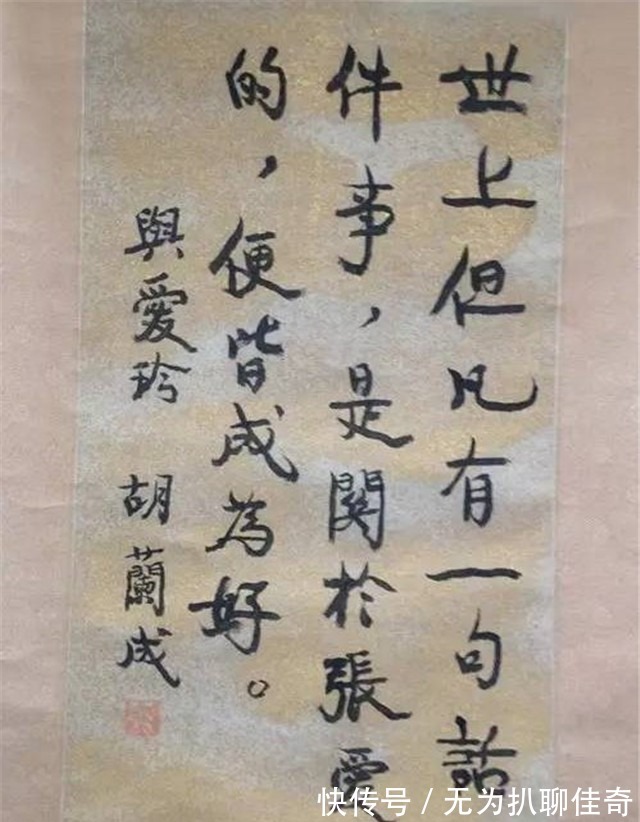 世上但凡有一句話
件事，是関於張愛
的，便皆成為好。
與愛玲
胡蘭成
快传号/无为扒聊佳奇